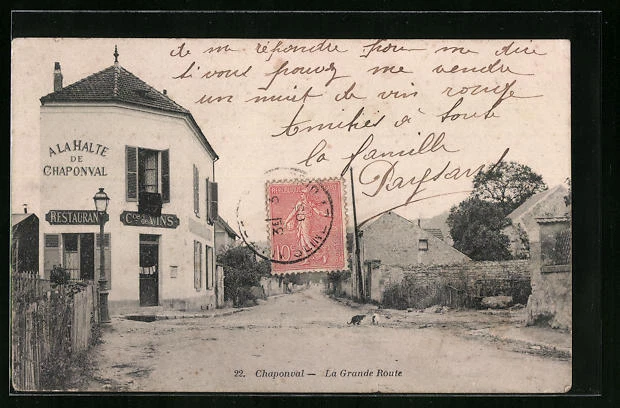 de me répondre pour me dire
si vous pouvez me vendre
un muit de vin rouge
Amitiés à toute
la famille
Paysant
A LA HALTE
DE
CHAPONVAL
RESTAURANT
Cce DE VINS
REPUBLIQUE
10
SEINE
22. Chaponval — La Grande Route